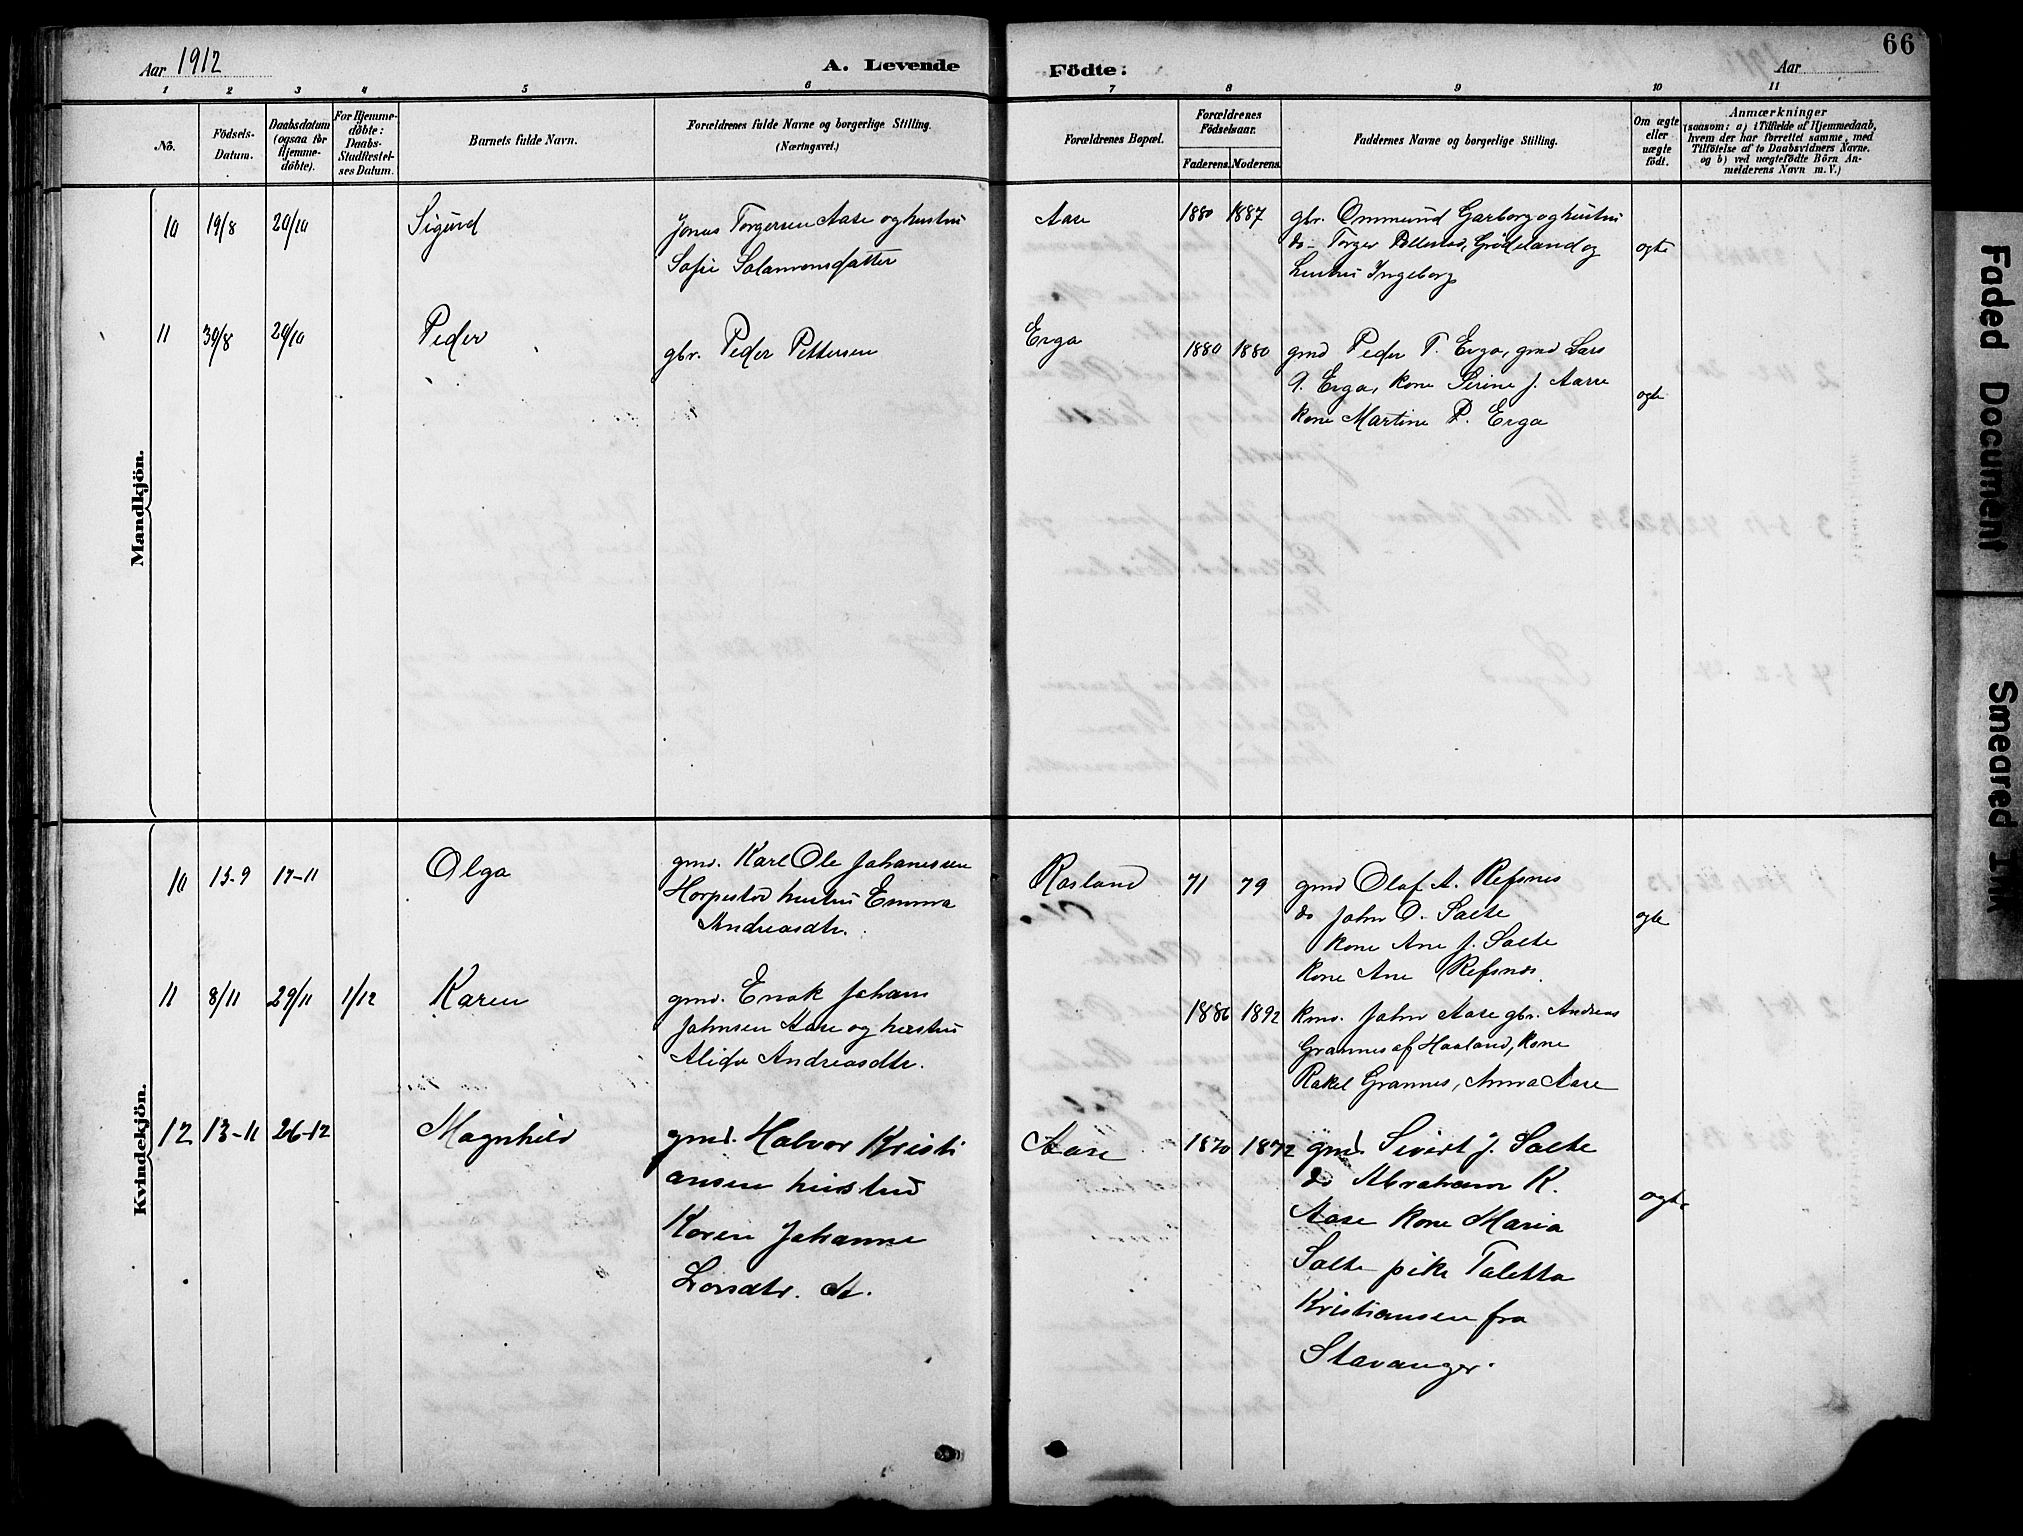 Aar 1912
A. Levende
Födte.
Aar
66
1 2 3 4 5 6 7 8 9 10 11
No.
Födsels-
Datum.
Daabsdatum
(ogsaa for
Hjemme-
døbte).
For Hjemme-
døbte:
Daabs-
Stadfæstel-
ses Datum.
Barnets fulde Navn.
Forældrenes fulde Navne og borgerlige Stilling.
(Næringsvei.)
Forældrenes Bopæl.
Forældrenes
Fødselsaar.
Faderens. Moderens.
Faddernes Navne og borgerlige Stilling.
Om ægte
eller
uægte
født.
Anmærkninger
(saasom: a) i Tilfælde af Hjemmedaab,
hvem der har forrettet samme, med
Tilføielse af to Daabsvidners Navne,
og b) ved uægtefødte Börn An-
melderens Navn m. V.)
Mandkjön.
10 19/8 20/10 Sigurd
Jonas Torgersen Aase og hustru
Sofie Salamonsdatter
Aase
1880 1887
gbr. Ommund Garborg og hustru
do- Torger Pollestad, Grødeland og
hustru Ingeborg
ogte
11 30/8 20/10 Peder
gbr. Peder Pettersen
Erga
1880 1880
gmd Peder T. Erga, gmd Lars
P. Erga, kone Serine J. Aarre
kone Martine P. Erga
ogte
Kvindekjön.
10 13-9 17-11 Olga
gmd. Karl Ole Johanessen
Horpestad hustru Emma
Andreasdtr.
Rosland
71 79
gmd Olaf A. Refsnes
do John O. Salte
kone Ane J. Salte
kone Ane Refsnes.
ogte
11 8/11 29/11 1/12 Karen
gmd. Enok Johans
Johnsen Aase og hustru
Alida Andreasdtr.
1886 1892
kmd. John Aase gbr. Andreas
Grannes af Haaland, Kone
Rakel Grannes, Anna Aase
12 13-11 26-12 Magnhild
gmd. Halvor Kristi
ansen hustru
Karen Johanne
Larsdtr. A.
Aase
1870 1872
gmd. Sivert J. Salte
do Abraham K.
Aase kone Maria
Salte pike Taletta
Kristiansen fra
Stavanger.
ogte
Faded Document
Smeared Ink